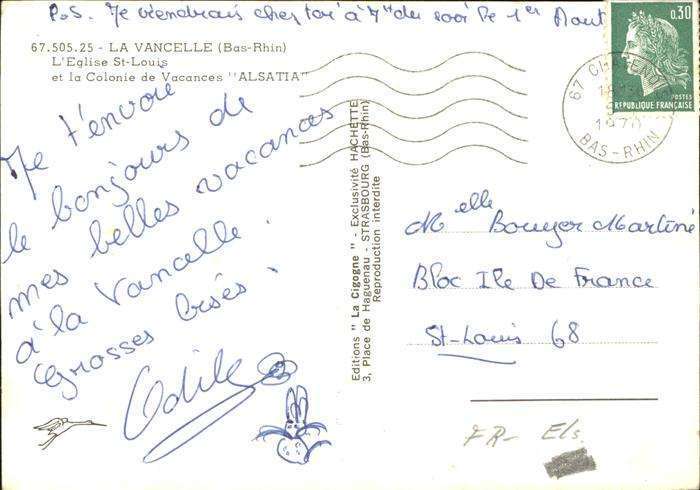 P.S. Je viendrais cher toi à 7h du soir le 1er Aout
67.505.25 - LA VANCELLE (Bas-Rhin)
L'Eglise St-Louis
et la Colonie de Vacances "ALSATIA"
Je t'envoie
le bonjours de
mes belles vacances
à la Vancelle.
Grosses bisés!
Odile
Editions "La Cigogne" - Exclusivité HACHETTE
3, Place de Haguenau - STRASBOURG (Bas-Rhin)
Reproduction interdite
0,30
POSTES
REPUBLIQUE FRANÇAISE
67
1970
BAS-RHIN
Melle Bouyer Martine
Bloc Ile De France
St-Louis 68
FR- Els.